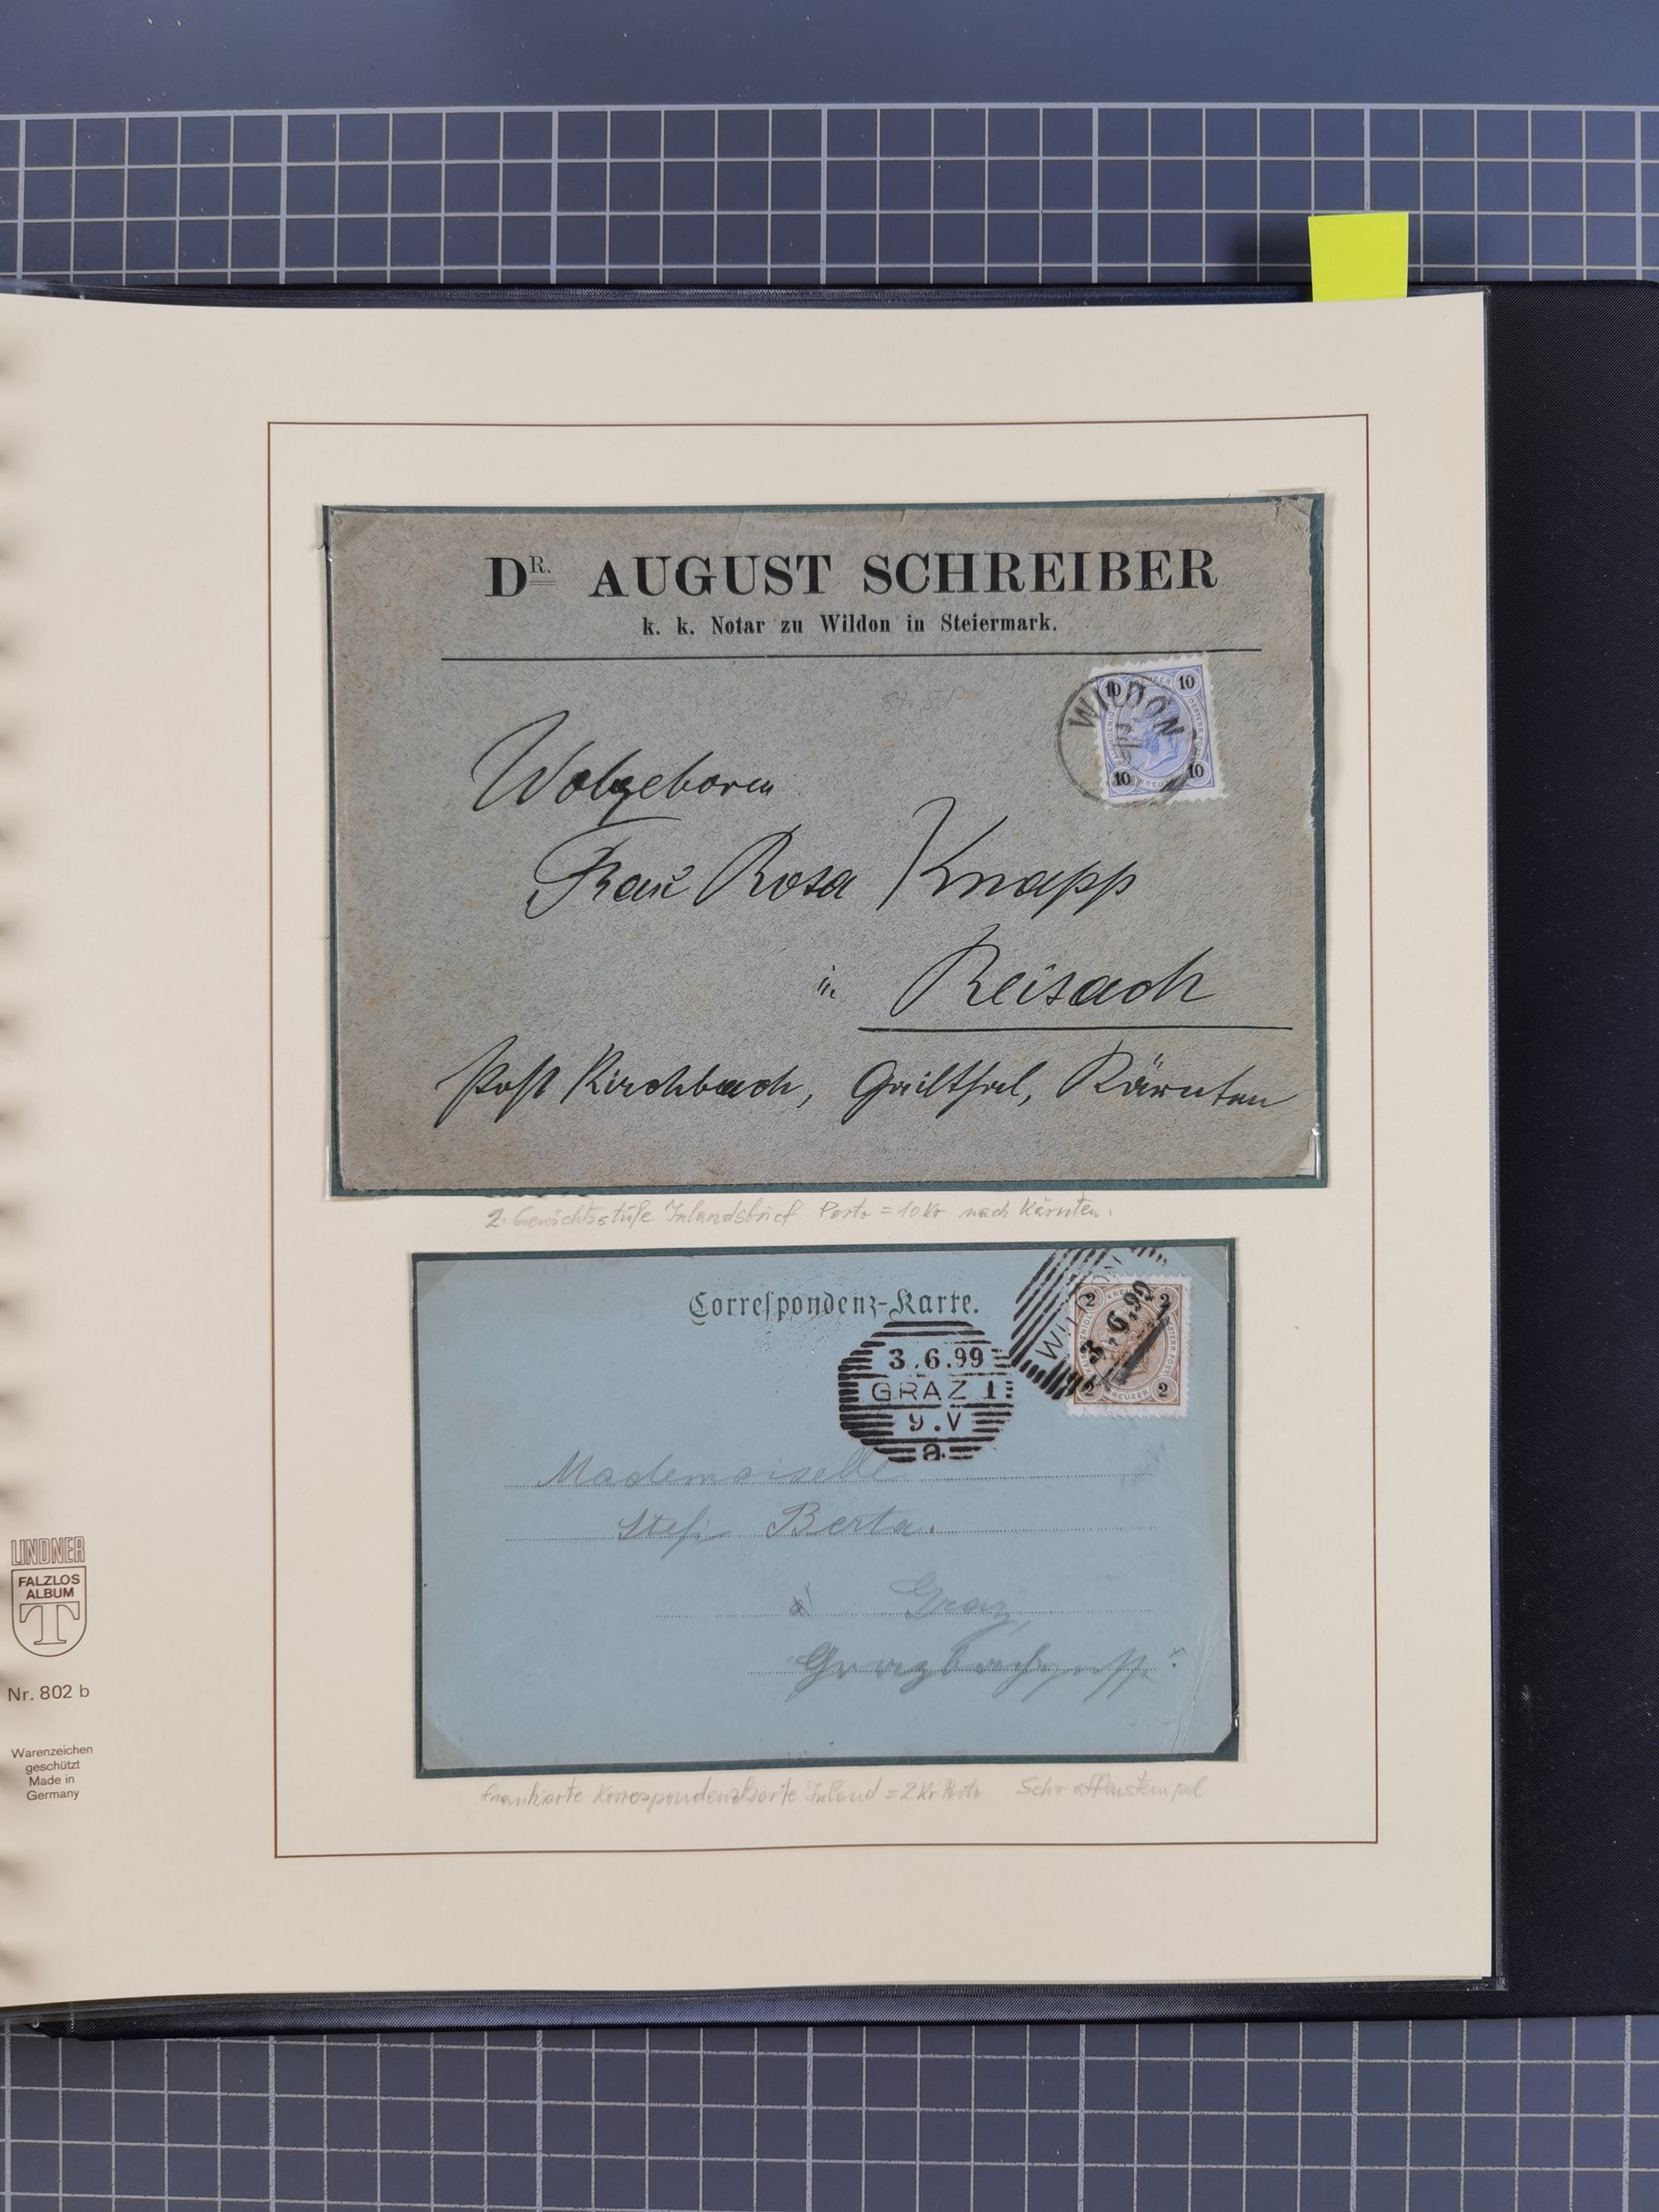 DR. AUGUST SCHREIBER
k. k. Notar zu Wildon in Steiermark.
10 10
WILDON
10 10
Wolgeboren
Frau Rosa Knapp
in Reisach
Post Kirchbach, Gailthal, Kärnten
2. Gewichtsstufe Inlandsbrief Porto = 10 Kr nach Kärnten.
Correspondenz-Karte.
2 2
WILDON
3.6.99
2 2
KREUZER
3.6.99
GRAZ 1
9.V
a
Mademoiselle
Stefi Berta.
Graz,
frankierte Korrespondenzkarte Inland = 2 Kr Porto Schraffenstempel
LINDNER
FALZLOS
ALBUM
T
Nr. 802 b
Warenzeichen
geschützt
Made in
Germany